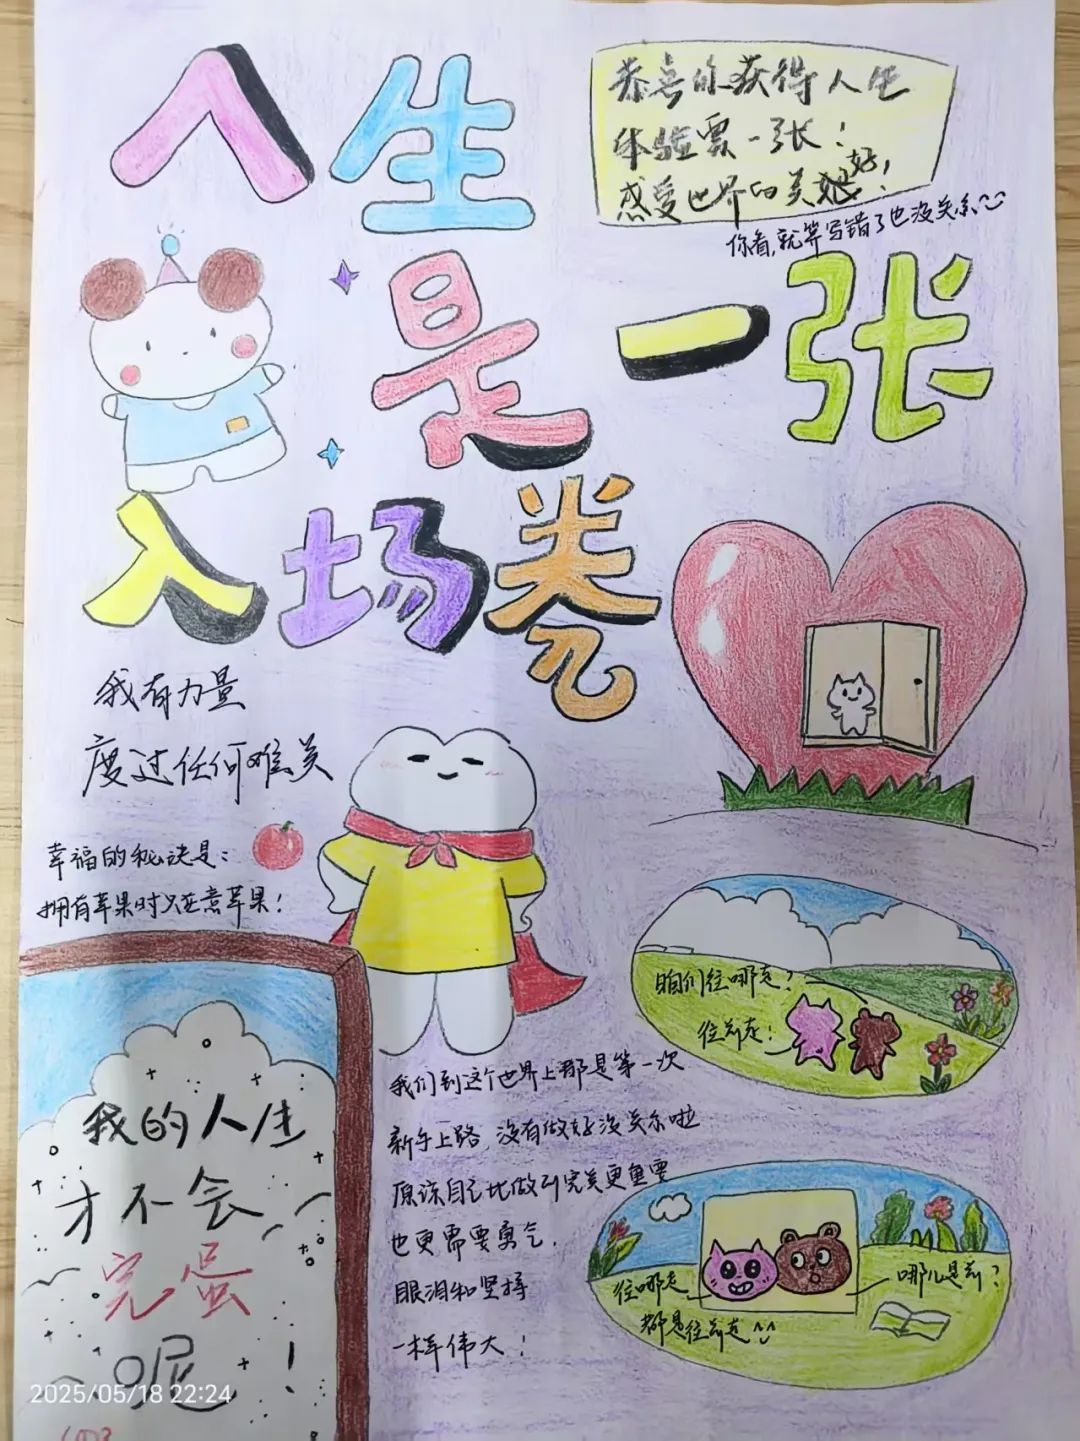 人生
恭喜你获得人生
体验票一张！
感受世界的美好！
你看,就算写错了也没关系
是一张
入场卷
我有力量
度过任何难关
幸福的秘诀是：
拥有苹果时只在意苹果！
咱们往哪走？
往前走！
我的人生
才不会
完蛋
呢！
我们到这个世界上都是第一次
新手上路,没有做好没关系啦
原谅自己比做到完美更重要
也更需要勇气.
眼泪和坚持
一样伟大！
往哪走
都是往前走
哪儿是前？
2025/05/18 22:24